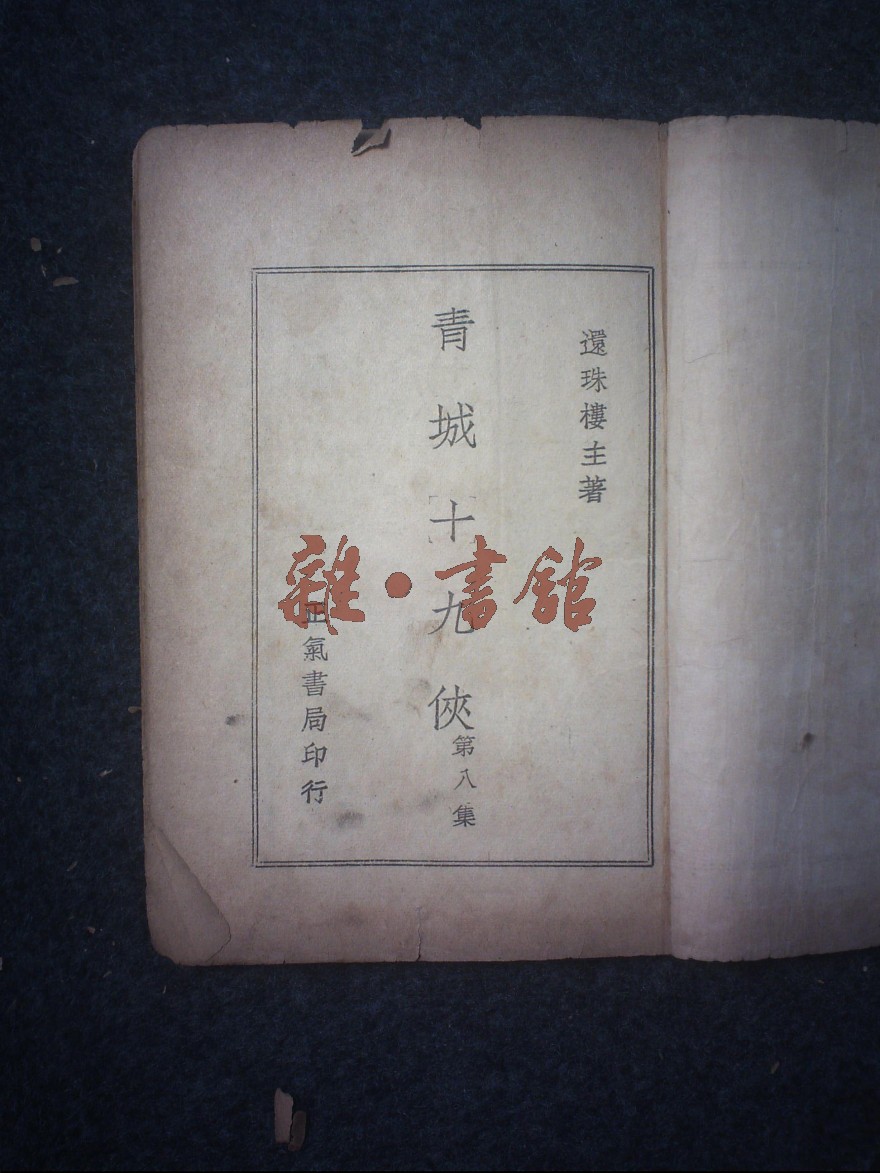 還珠樓主著
青城十九俠
第八集
正氣書局印行
雜·書館